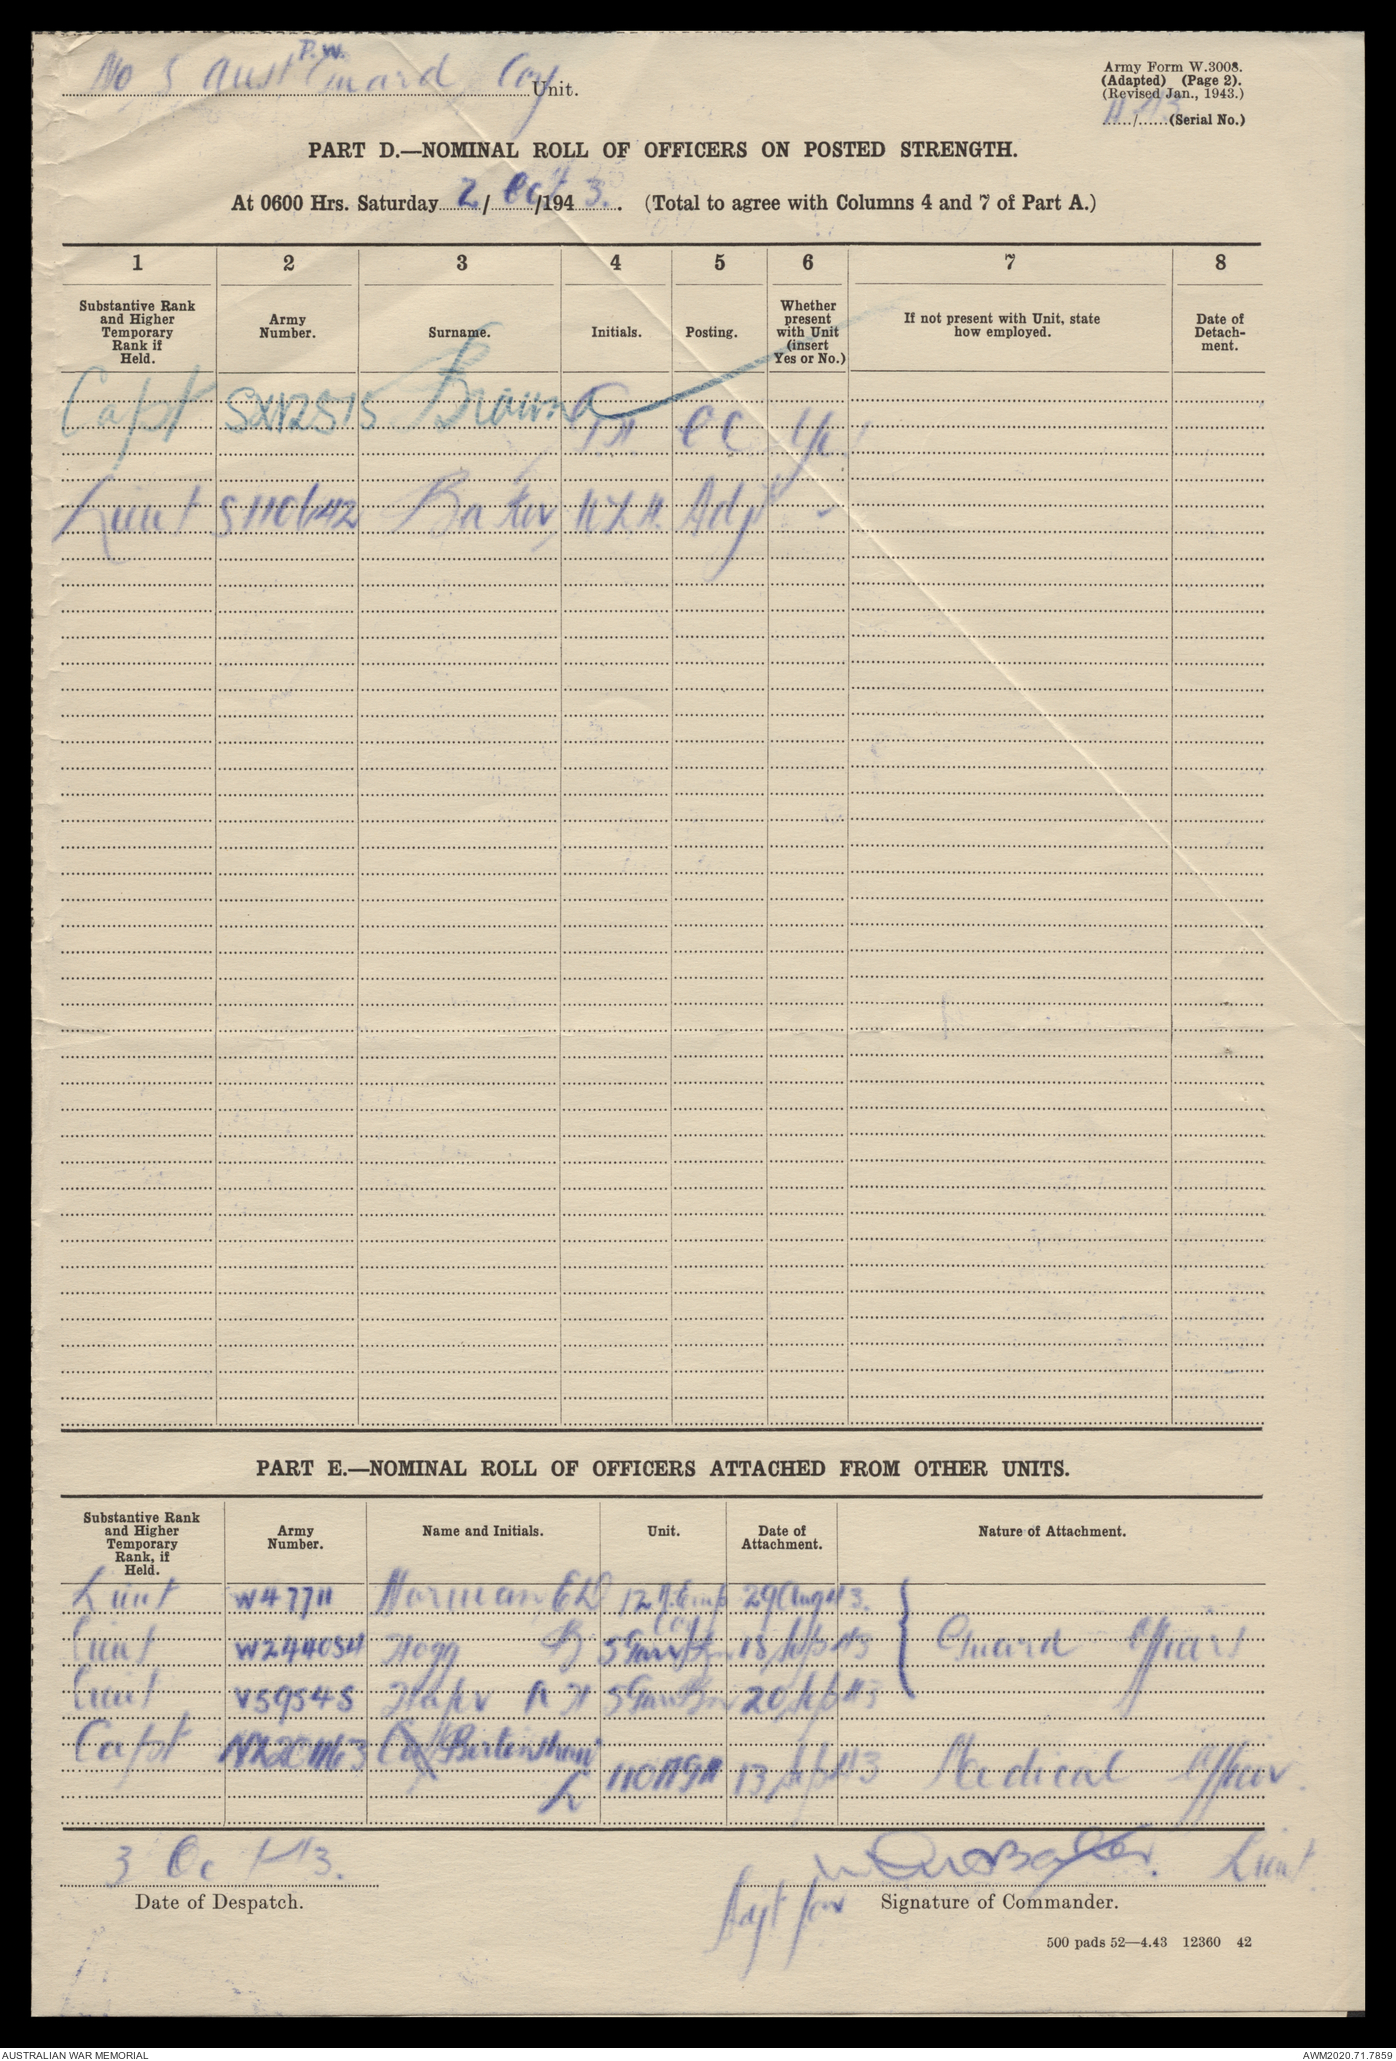 No 5 Aust P.W. Guard Coy Unit.
Army Form W.3008.
(Adapted) (Page 2).
(Revised Jan., 1943.)
....../......(Serial No.)
PART D.—NOMINAL ROLL OF OFFICERS ON POSTED STRENGTH.
At 0600 Hrs. Saturday 2/Oct/1943. (Total to agree with Columns 4 and 7 of Part A.)
1 2 3 4 5 6 7 8
Substantive Rank and Higher Temporary Rank if Held.
Army Number.
Surname.
Initials.
Posting.
Whether present with Unit (insert Yes or No.)
If not present with Unit, state how employed.
Date of Detachment.
Capt SX12515 Brown
Lieut Baker Adjt
PART E.—NOMINAL ROLL OF OFFICERS ATTACHED FROM OTHER UNITS.
Substantive Rank and Higher Temporary Rank, if Held.
Army Number.
Name and Initials.
Unit.
Date of Attachment.
Nature of Attachment.
Lieut W47711 Norman 29 Aug 43.
Lieut Hogg B 5 Garr Bn 18 Sep 43 Guard Officers
Lieut V59545 5 Garr Bn 20 Sep 43
Capt 13 Sep 43 Medical Officer.
3 Oct 43.
Baker. Lieut
Date of Despatch.
Adjt for Signature of Commander.
500 pads 52—4.43 12360 42
AUSTRALIAN WAR MEMORIAL
AWM2020.71.7859